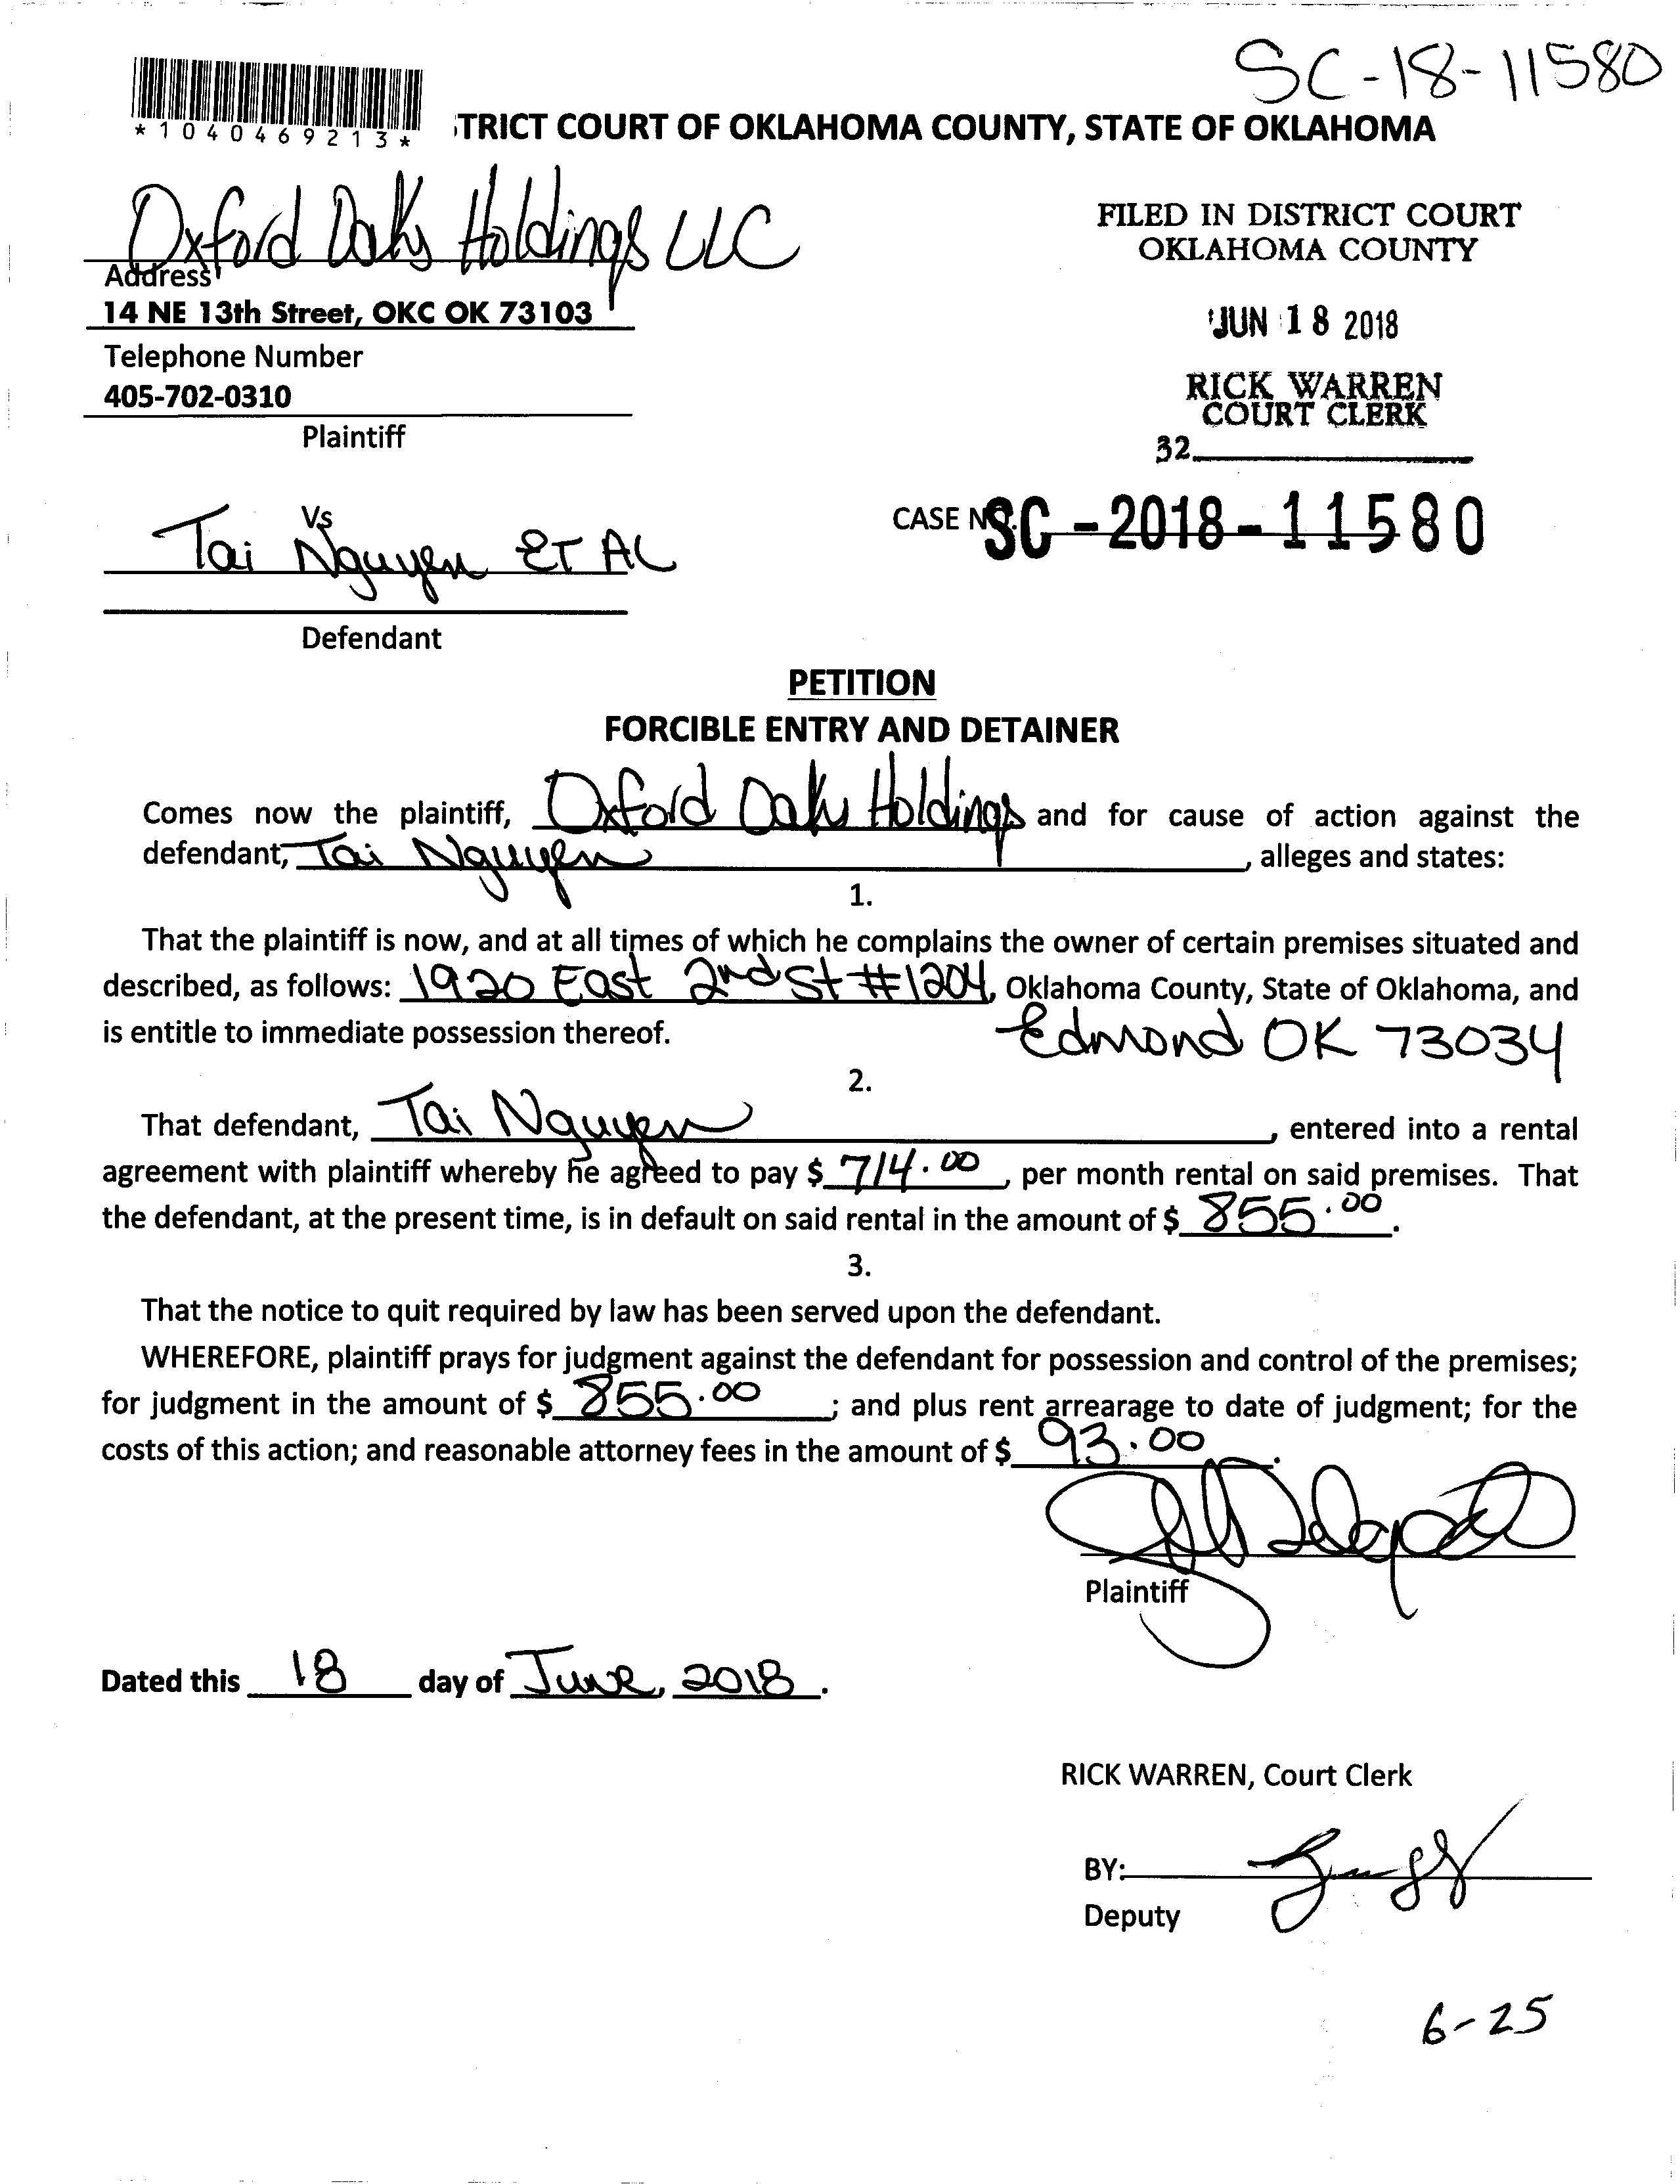 SC-18-11580
*1040469213*
TRICT COURT OF OKLAHOMA COUNTY, STATE OF OKLAHOMA
Oxford Oaks Holdings LLC
Address
14 NE 13th Street, OKC OK 73103
Telephone Number
405-702-0310
Plaintiff
FILED IN DISTRICT COURT
OKLAHOMA COUNTY
JUN 18 2018
RICK WARREN
COURT CLERK
32
Vs
Tai Nguyen ET AL
Defendant
CASE NO. SC-2018-11580
PETITION
FORCIBLE ENTRY AND DETAINER
Comes now the plaintiff, Oxford Oaks Holdings and for cause of action against the
defendant, Tai Nguyen, alleges and states:
1.
That the plaintiff is now, and at all times of which he complains the owner of certain premises situated and
described, as follows: 1920 East 2nd St #1204, Oklahoma County, State of Oklahoma, and
is entitle to immediate possession thereof. Edmond OK 73034
2.
That defendant, Tai Nguyen, entered into a rental
agreement with plaintiff whereby he agreed to pay $ 714.00, per month rental on said premises. That
the defendant, at the present time, is in default on said rental in the amount of $ 855.00.
3.
That the notice to quit required by law has been served upon the defendant.
WHEREFORE, plaintiff prays for judgment against the defendant for possession and control of the premises;
for judgment in the amount of $ 855.00; and plus rent arrearage to date of judgment; for the
costs of this action; and reasonable attorney fees in the amount of $ 93.00.
Plaintiff
Dated this 18 day of June, 2018.
RICK WARREN, Court Clerk
BY:
Deputy
6-25